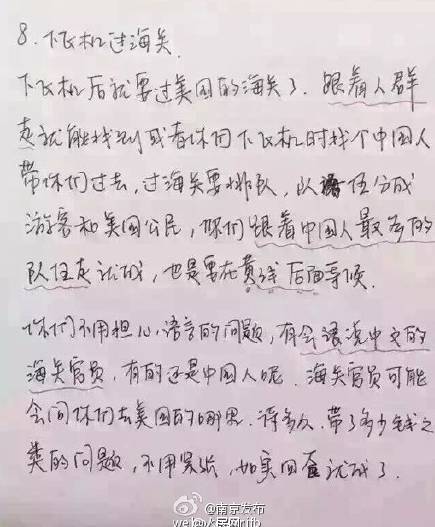 8. 下飞机过海关.
下飞机后就要过美国的海关了. 跟着人群
走就能找到或者你们下飞机时找个中国人
带你们过去, 过海关要排队, 队伍分成
游客和美国公民, 你们跟着中国人最多的
队伍走就成, 也是要在黄线后面等候.
你们不用担心语言的问题, 有会语凌中文的
海关官员, 有的还是中国人呢. 海关官员可能
会问你们去美国的哪里. 待多久, 带了多少钱之
类的问题, 不用紧张, 如实回答就成了.
@南京发布